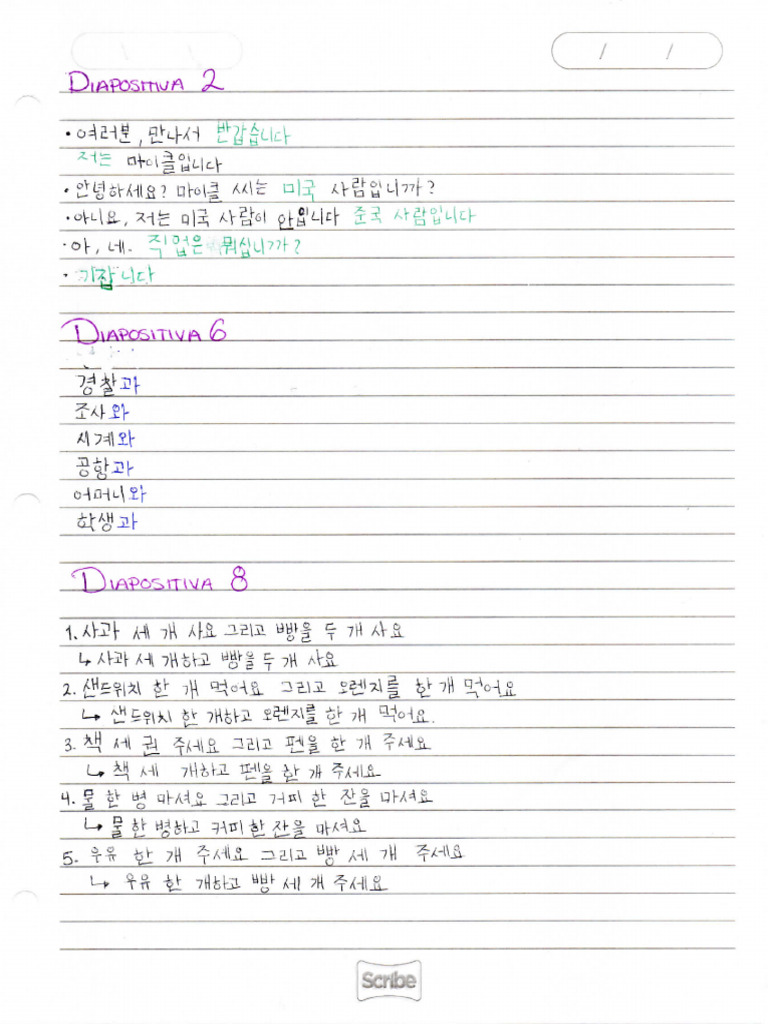 DIAPOSITIVA 2
• 여러분, 만나서 반갑습니다
저는 마이클입니다
• 안녕하세요? 마이클 씨는 미국 사람입니까?
• 아니요, 저는 미국 사람이 안입니다 준국 사람입니다
• 아, 네. 직업은 뭐십니까?
• 기잡니다
DIAPOSITIVA 6
경찰과
조사와
시계와
공항과
어머니와
학생과
DIAPOSITIVA 8
1. 사과 세 개 사요 그리고 빵을 두 개 사요
↳ 사과 세 개하고 빵을 두 개 사요
2. 샌드위치 한 개 먹어요 그리고 오렌지를 한 개 먹어요
↳ 샌드위치 한 개하고 오렌지를 한 개 먹어요.
3. 책 세 권 주세요 그리고 펜을 한 개 주세요
↳ 책 세 개하고 펜을 한 개 주세요
4. 물 한 병 마셔요 그리고 커피 한 잔을 마셔요
↳ 물 한 병하고 커피 한 잔을 마셔요
5. 우유 한 개 주세요 그리고 빵 세 개 주세요
↳ 우유 한 개하고 빵 세 개 주세요
Scribe